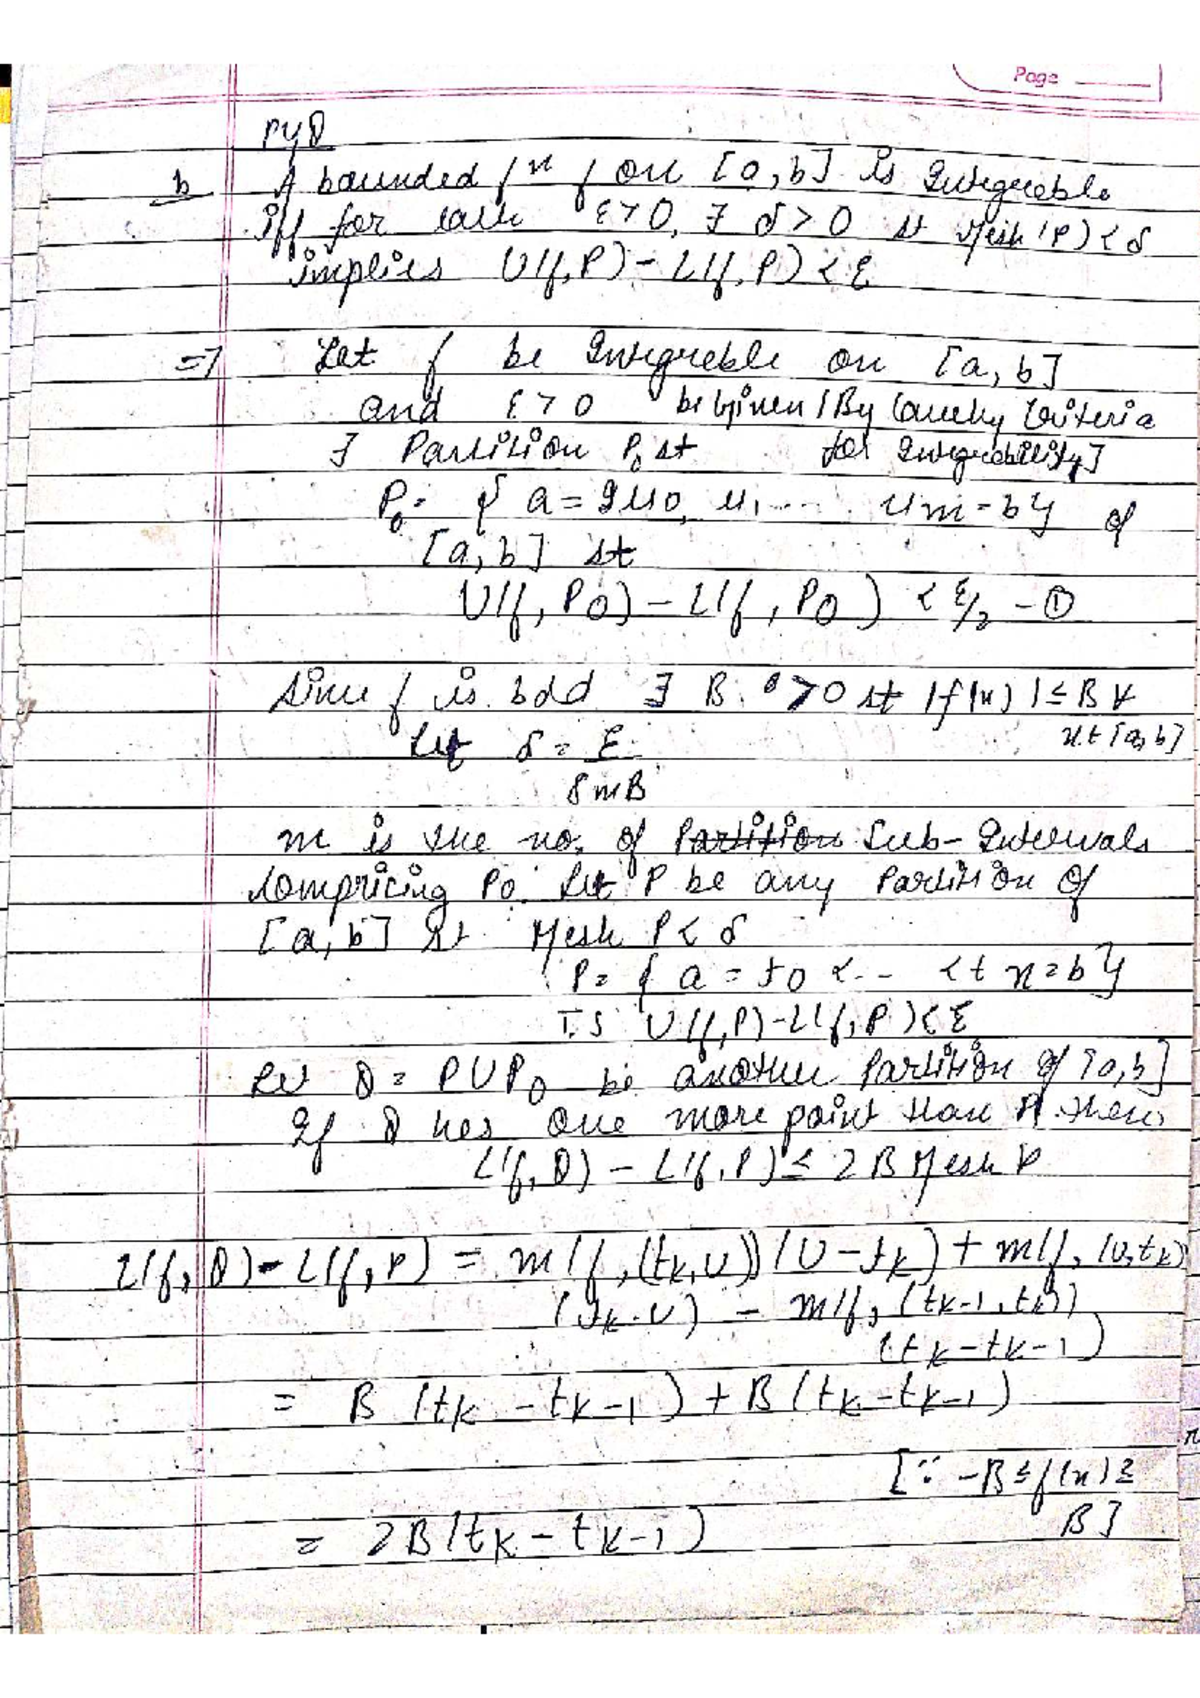 Page
PYQ
b A bounded fn f on [a, b] is Integreable
iff for each ε > 0, ∃ δ > 0 st Mesh (P) < δ
implies U(f, P) - L(f, P) < ε
=> Let f be Integreble on [a, b]
and ε > 0 be given [By Cauchy Criteria
∃ Partition P₀ st for Integrability]
P₀ = { a = u₀, u, .... um = b} of
[a, b] st
U(f, P₀) - L(f, P₀) < ε/2 - ①
Since f is bdd ∃ B > 0 st |f(x)| ≤ B ∀
x ∈ [a, b]
Let δ = ε
8mB
m is the no. of Partition Sub-Intervals
Compricing P₀. Let P be any Partition of
[a, b] st Mesh P < δ
P = { a = t₀ < -- < t n = b}
T.S U(f, P) - L(f, P) < ε
Let Q = P U P₀ be another Partition of [a, b]
If Q hes one more point than P. then,
L(f, Q) - L(f, P) ≤ 2 B Mesh P
L(f, Q) - L(f, P) = m(f, (tk, U)) (U - tk) + m(f, (U, tk)
(tk - U) - m(f, (tk-1, tk))
(tk - tk-1)
= B (tk - tk-1) + B (tk - tk-1)
[∵ -B ≤ f(x) ≤
B]
= 2B(tk - tk-1)